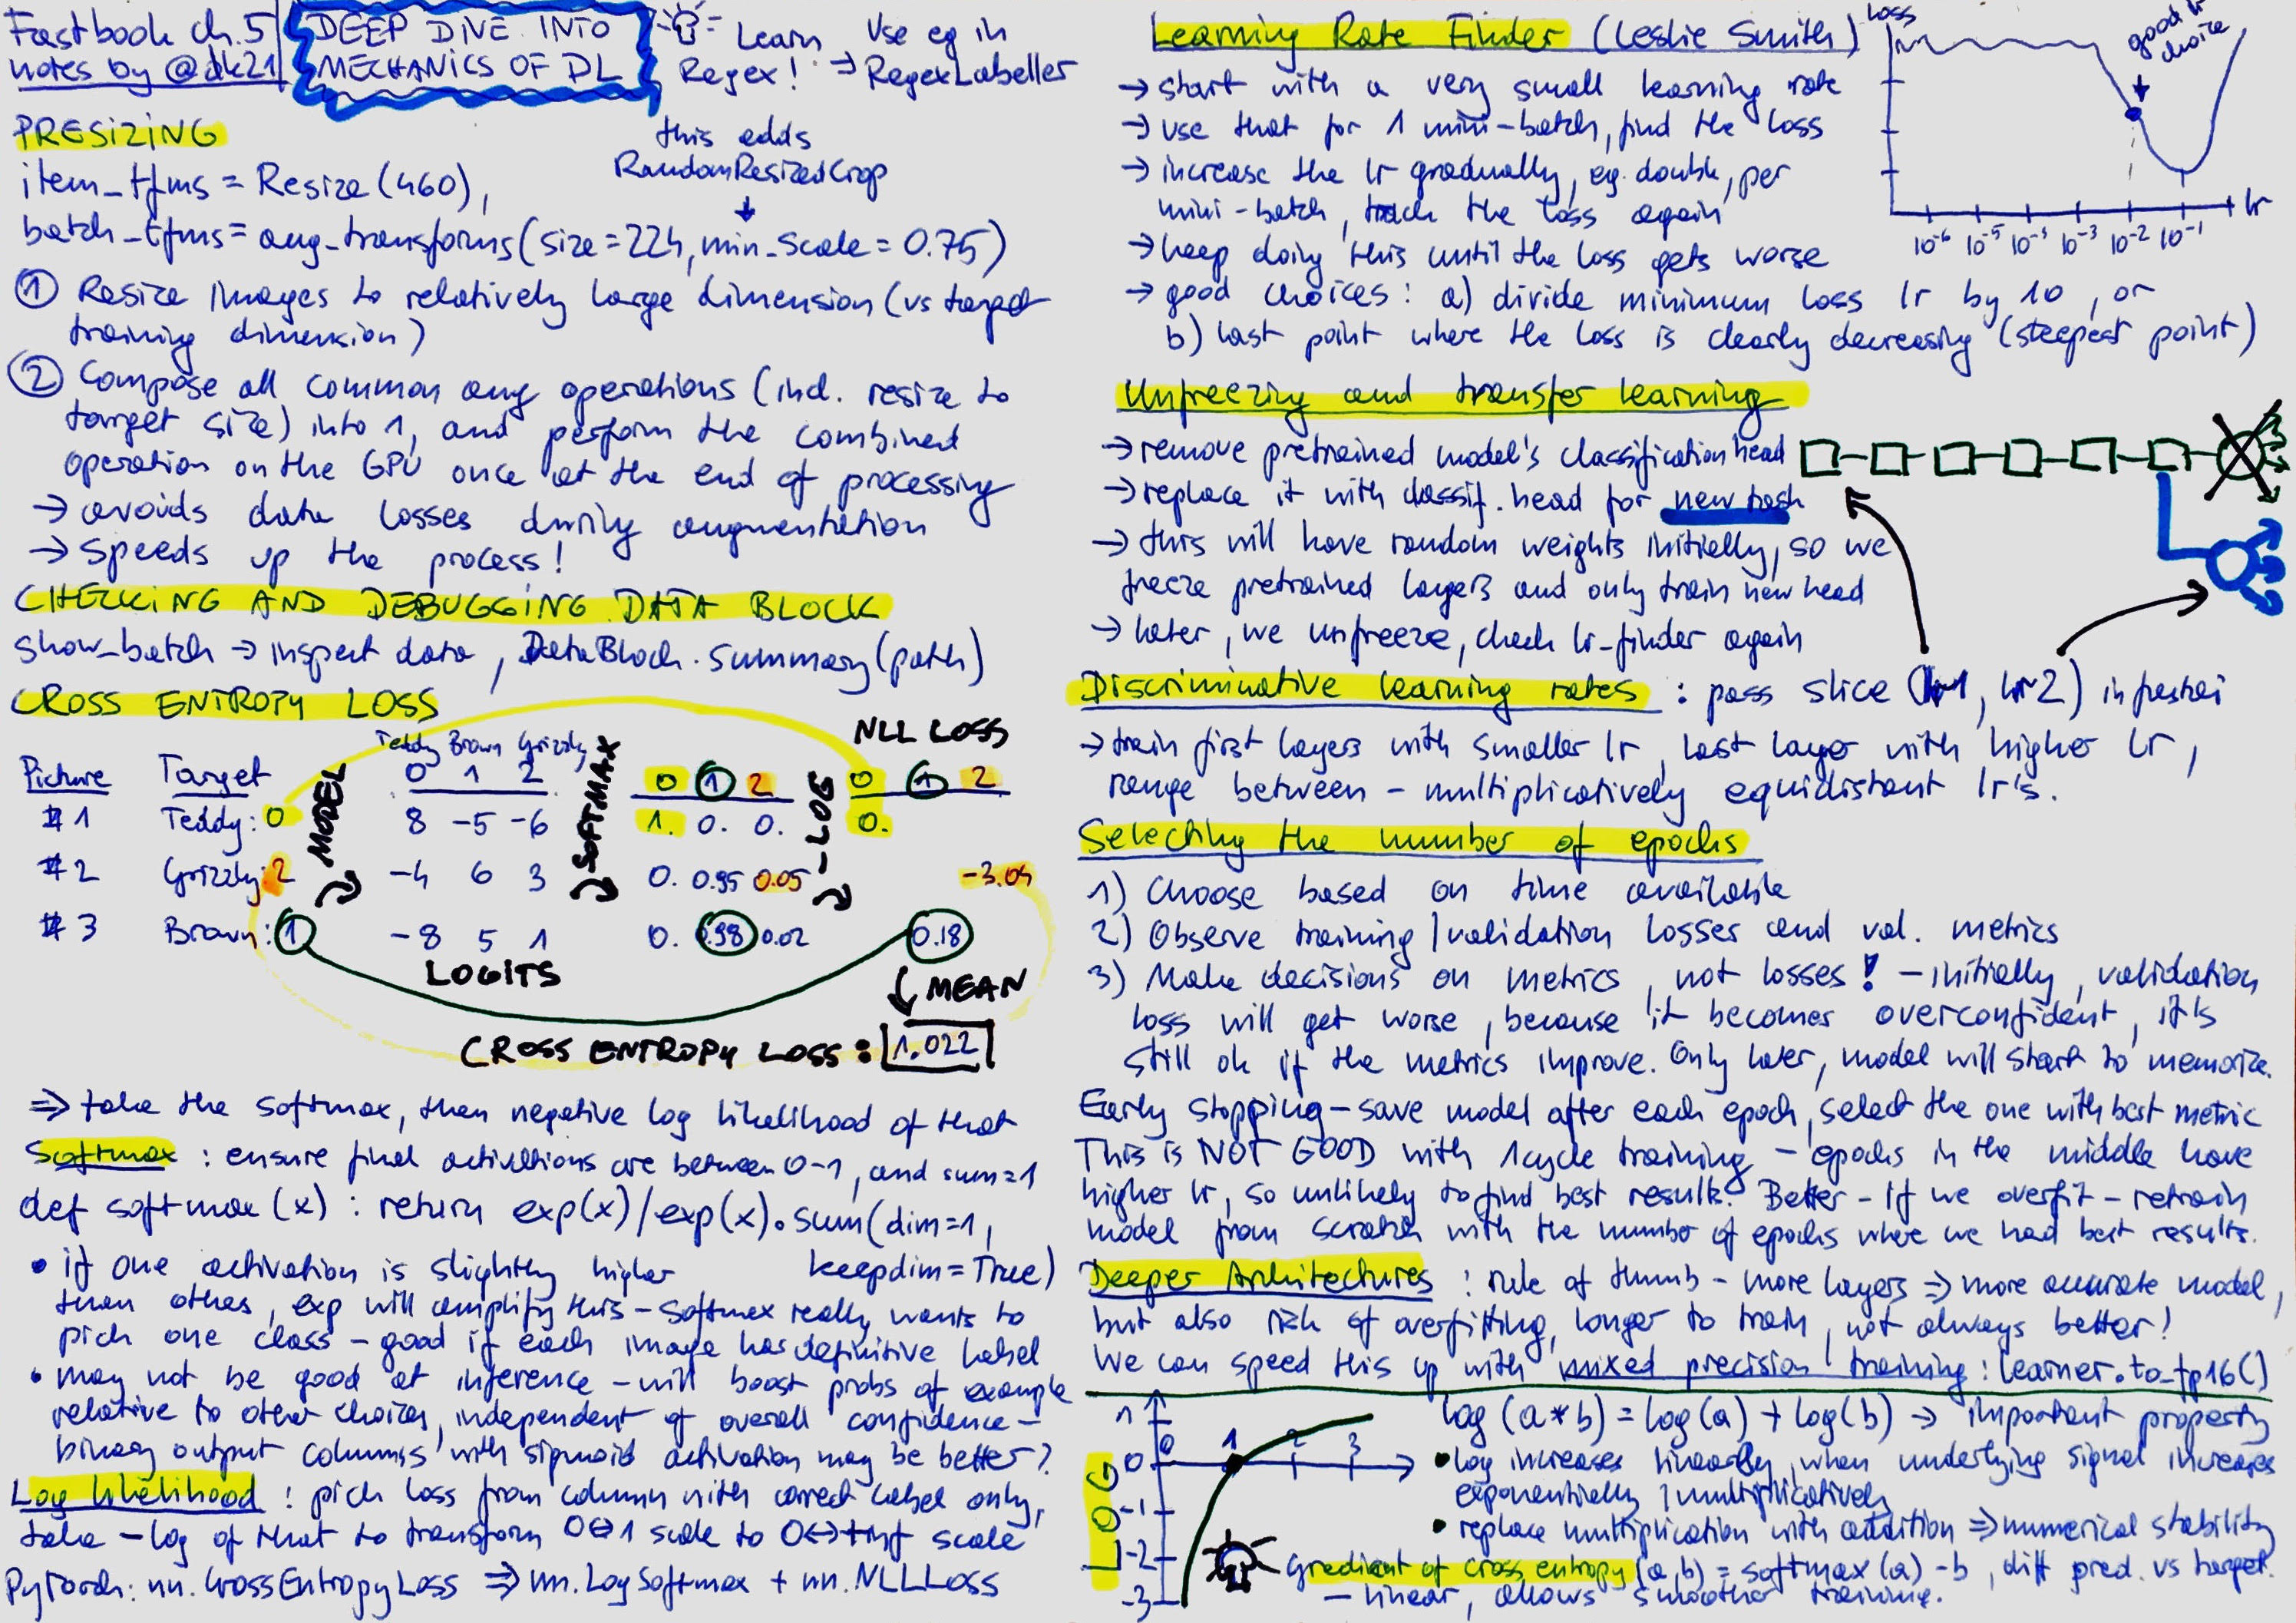 Fastbook ch.5
notes by @dk21
DEEP DIVE INTO
MECHANICS OF DL
Learn
Regex!
Use eg in
→ RegexLabeller
PRESIZING
this adds
RandomResizedCrop
item_tfms = Resize(460),
batch_tfms = aug_transforms(size=224, min_scale=0.75)
① Resize images to relatively large dimension (vs target
training dimension)
② Compose all common aug operations (incl. resize to
target size) into 1, and perform the combined
operation on the GPU once at the end of processing
→ avoids data losses during augmentation
→ speeds up the process!
CHECKING AND DEBUGGING DATA BLOCK
show_batch → inspect data, DataBlock.summary(path)
CROSS ENTROPY LOSS
NLL LOSS
Teddy Brown Grizzly
Picture Target 0 1 2 0 1 2 0 1 2
MODEL
SOFTMAX
-LOG
#1 Teddy: 0 8 -5 -6 1. 0. 0. 0.
#2 Grizzly: 2 -4 6 3 0. 0.95 0.05 -3.05
#3 Brown: 1 -8 5 1 0. 0.98 0.02 0.18
LOGITS
MEAN
CROSS ENTROPY LOSS: 1.022
⇒ take the softmax, then negative log likelihood of that
Softmax: ensure final activations are between 0-1, and sum=1
def softmax(x): return exp(x)/exp(x).sum(dim=1,
keepdim=True)
• if one activation is slightly higher
than others, exp will amplify this - softmax really wants to
pick one class - good if each image has definitive label
• may not be good at inference - will boost probs of example
relative to other choices, independent of overall confidence -
binary output columns with sigmoid activation may be better?
Log likelihood: pick loss from column with correct label only,
take -log of that to transform 0↔1 scale to 0↔+inf scale
PyTorch: nn.CrossEntropyLoss ⇒ nn.LogSoftmax + nn.NLLLoss
Learning Rate Finder (Leslie Smith)
→ start with a very small learning rate
→ use that for 1 mini-batch, find the loss
→ increase the lr gradually, eg. double, per
mini-batch, track the loss again
→ keep doing this until the loss gets worse
→ good choices: a) divide minimum loss lr by 10, or
b) last point where the loss is clearly decreasing (steepest point)
Loss
good lr
choice
lr
10⁻⁶ 10⁻⁵ 10⁻⁴ 10⁻³ 10⁻² 10⁻¹
Unfreezing and transfer learning
→ remove pretrained model's classification head
→ replace it with classif. head for new task
→ this will have random weights initially, so we
freeze pretrained layers and only train new head
→ later, we unfreeze, check lr-finder again
Discriminative learning rates: pass slice (lr1, lr2) in fastai
→ train first layers with smaller lr, last layer with higher lr,
range between - multiplicatively equidistant lr's.
Selecting the number of epochs
1) Choose based on time available
2) Observe training/validation losses and val. metrics
3) Make decisions on metrics, not losses! - initially, validation
loss will get worse, because it becomes overconfident, it's
still ok if the metrics improve. Only later, model will start to memorize.
Early stopping - save model after each epoch, select the one with best metric
This is NOT GOOD with 1cycle training - epochs in the middle have
higher lr, so unlikely to find best results. Better - if we overfit - retrain
model from scratch with the number of epochs where we had best results.
Deeper Architectures: rule of thumb - more layers ⇒ more accurate model,
but also risk of overfitting, longer to train, not always better!
We can speed this up with mixed precision training: learner.to_fp16()
LOG
1
0
-1
-2
-3
0 1 2 3
log(a*b) = log(a) + log(b) → important property
• log increases linearly, when underlying signal increases
exponentially/multiplicatively
• replace multiplication with addition ⇒ numerical stability
Gradient of cross entropy (a,b) = softmax(a) - b, diff pred. vs target.
- linear, allows smoother training.